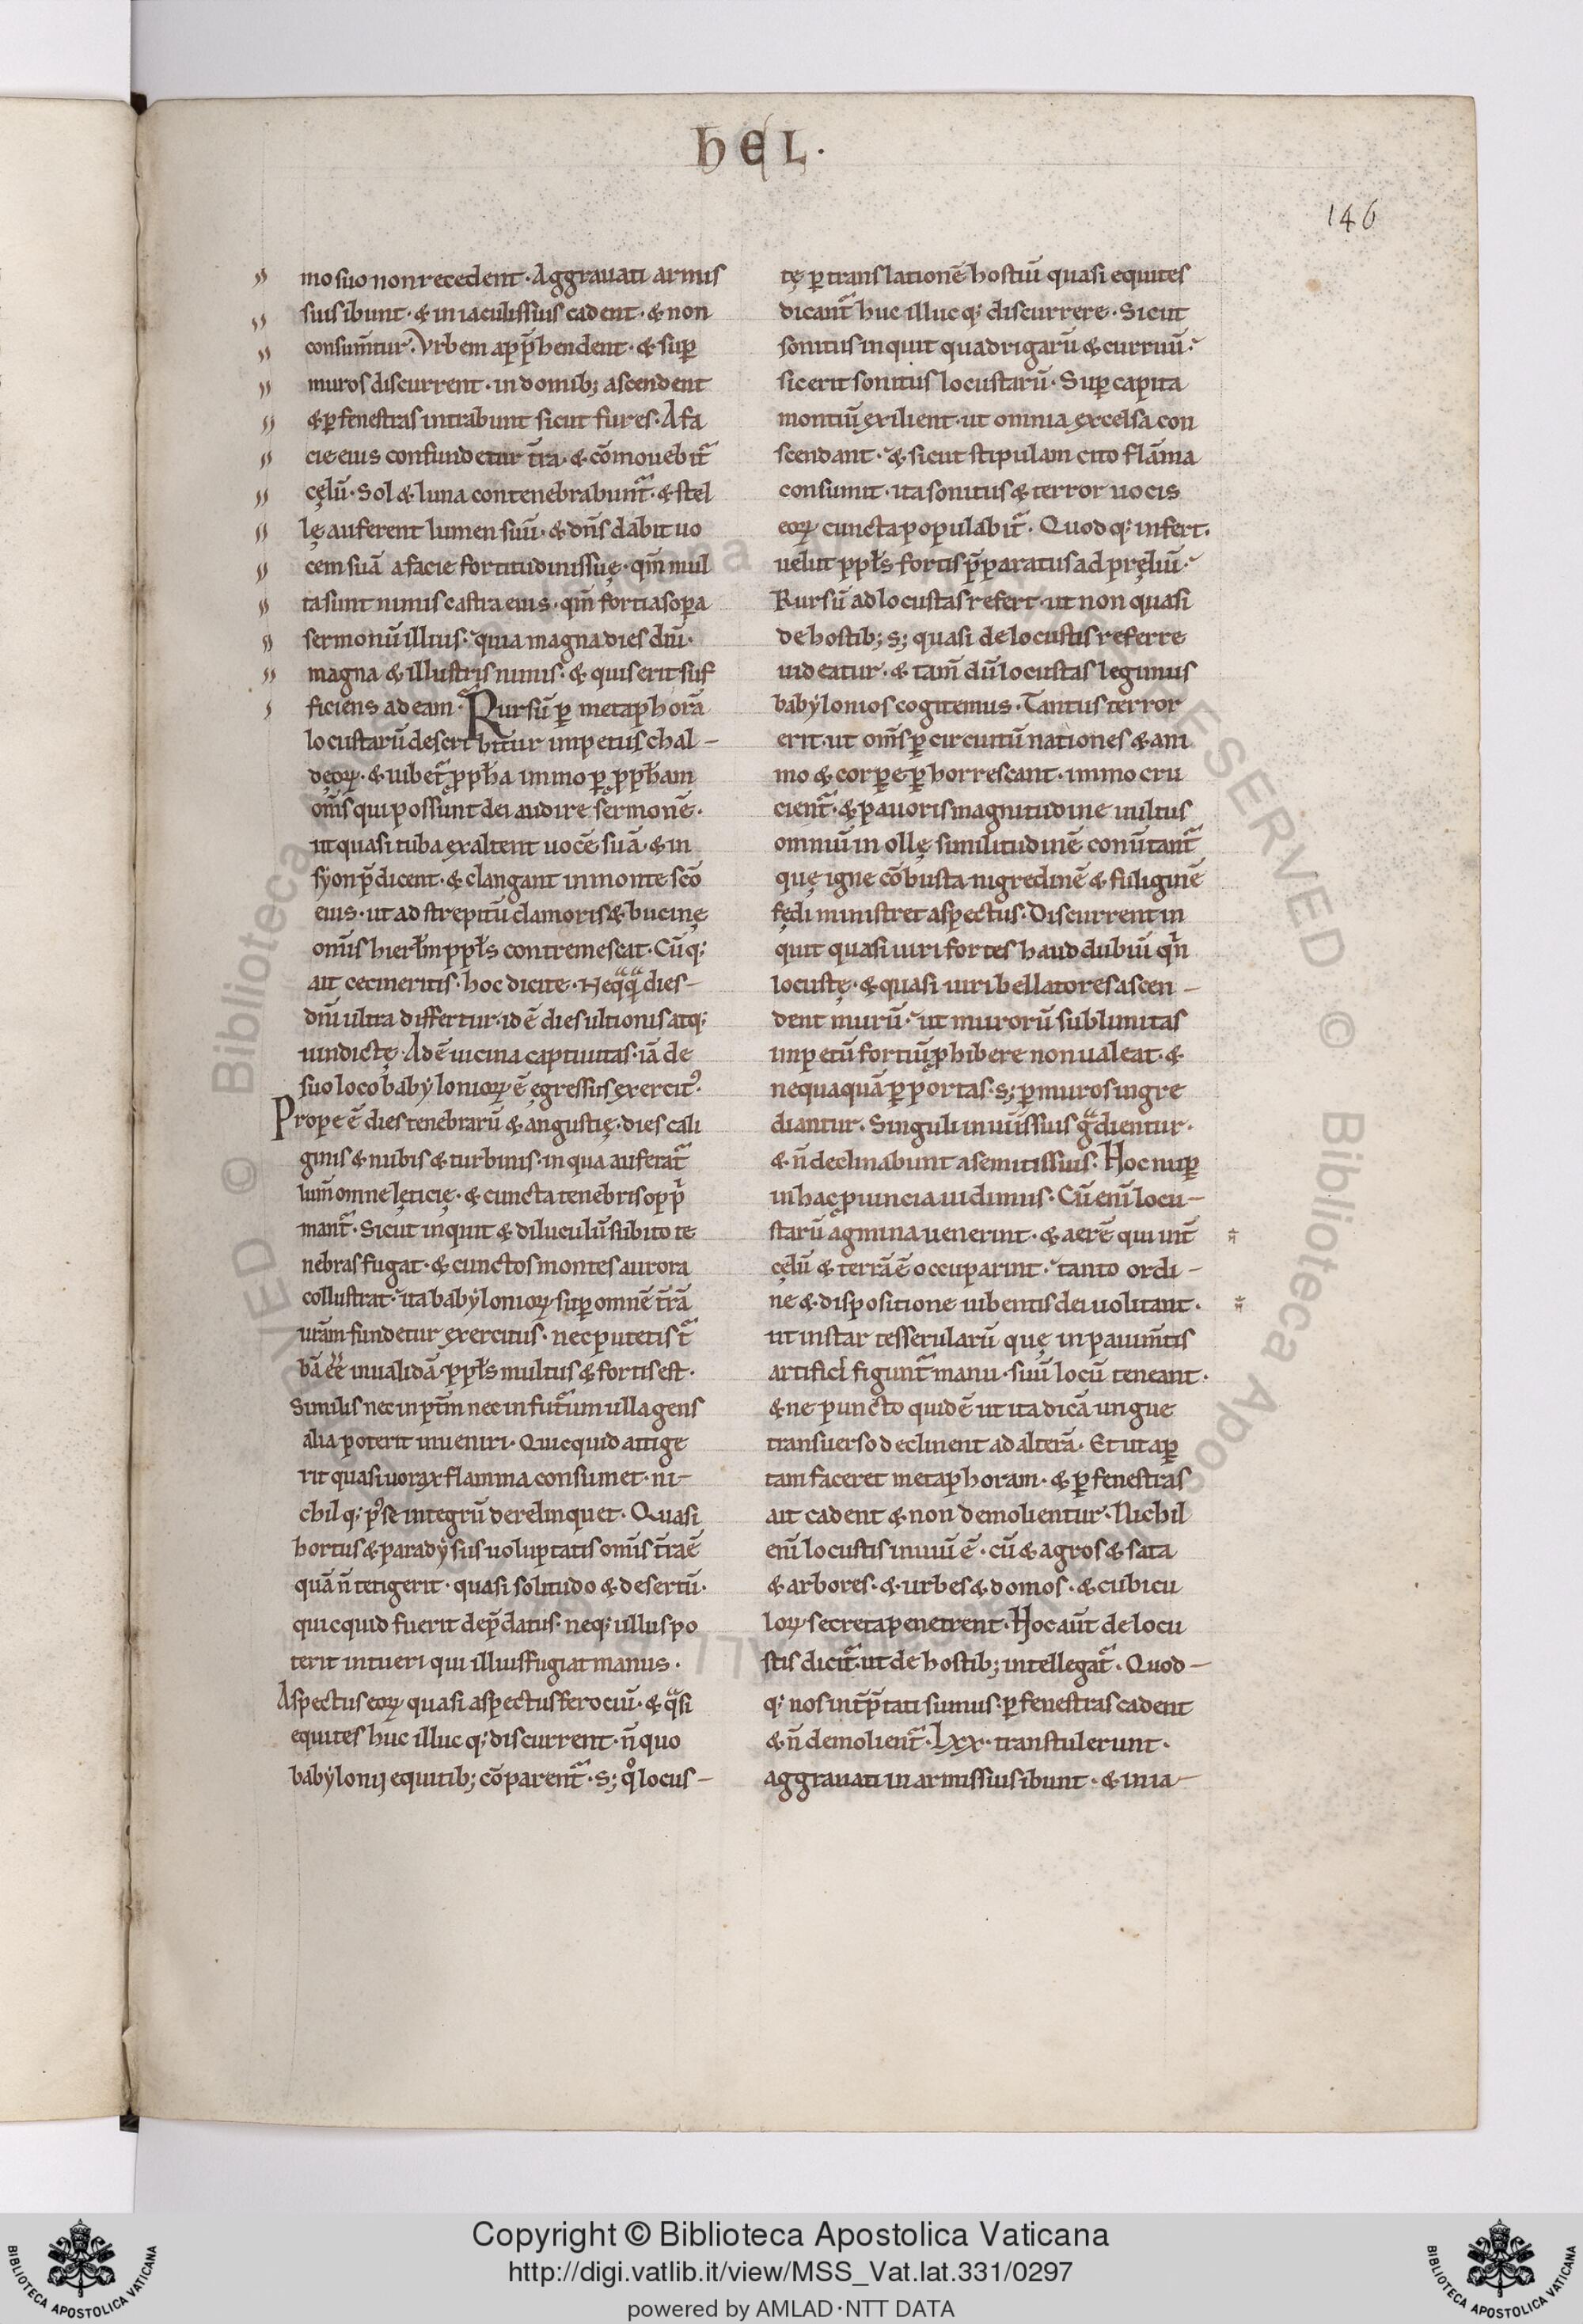 hEL.
146
mo suo non recedent. Aggrauati armis
suis ibunt. & in iaculis suis cadent. & non
consum̄tur. Vrbem app̄hendent. & sup̱
muros discurrent. in domib; ascendent
& p̱ fenestras intrabunt sicut fures. A fa
cie eius confundetur t̄ra. & cōmouebit᷑
cęlū. Sol & luna contenebrabunt᷑. & stel
lę auferent lumen suū. & dn̄s dabit uo
cem suā a facie fortitudinis suę. qm̄ mul
ta sunt nimis castra eius. qm̄ fortia s opa
sermonū illius. quia magna dies dn̄i.
magna & illustris nimis. & quis erit suf
ficiens ad eam. Rursū p̱ metaphorā
locustarū describitur impetus chal-
deoꝝ. & iubet᷑ ꝓph̄a immo p̱ ꝓph̄am
om̄s qui possunt dei audire sermonē.
ut quasi tuba exaltent uocē suā. & in
syon p̄dicent. & clangant in monte sc̄o
eius. ut ad strepitū clamoris & bucinę
omīs hierłm ppłs contremescat. Cū q;
ait cecineritis. hoc dicite. Neqͣqͣ dies-
dn̄i ultra differtur. id ē dies ultionis atq;
uindictę. Adē uicina captiuitas. iā de
suo loco babylonioꝝ ē egressus exercit᷒.
Prope ē dies tenebrarū & angustię. dies cali
ginis & nubis & turbinis. in qua auferat᷑
lum̄ omne lęticię. & cuncta tenebris opp͛
mant᷑. Sicut inquit & diluculū subito te
nebras fugat. & cunctos montes aurora
collustrat. ita babylonioꝝ sup̱ omnē t̄rā
ur̄am fundetur exercitus. nec putetis t᷑
bā ēē inualidā. ppłs multus & fortis est.
Similis nec in p̱t̄m nec in fut᷑um ulla gens
alia poterit inueniri. Quicquid attige
rit quasi uorax flamma consumet. ni-
chil q; p᷒ se integrū derelinquet. Quasi
hortus & paradysus uoluptatis omīs t̄ra ē
quā n̄ tetigerit. quasi solitudo & desertū.
quicquid fuerit dep̄datus. neq; ullus po
terit intueri qui illius fugiat manus.
Aspectus eoꝝ quasi aspectus ferociū. & qͣsi
equites huc illuc q; discurrent. n̄ quo
babylonij equitib; cōparent᷑. s; qͦ locus-
tę p̱ translationē hostiū quasi equites
dicant᷑ huc illuc q; discurrere. Sicut
sonitus inquit quadrigarū & curruū.
sic erit sonitus locustarū. Sup̱ capita
montiū exilient. ut omnia excelsa con
scendant. & sicut stipulam cito flāma
consumit. ita sonitus & terror uocis
eoꝝ cuncta populabit᷑. Quod q; infert.
uelut ppłs fortis p̄paratus ad pręliū.
Rursū ad locustas refert. ut non quasi
de hostib; s; quasi de locustis referre
uideatur. & tam̄ dū locustas legimus
babylonios cogitemus. Tantus terror
erit. ut om̄s p̱ circuitū nationes & ani
mo & corpore p̱horrescant. immo cru
cient᷑. & pauoris magnitudine uultus
omniū in ollę similitudinē conūtant᷑
quę igne cōbusta nigredinē & fuliginē
fędi ministret aspectus. Discurrent in
quit quasi uiri fortes haud dubiū qn̄
locustę. & quasi uiri bellatores ascen-
dent murū. ut murorū sublimitas
impetū fortiū ꝓhibere non ualeat. &
nequaquā p̱ portas. s; p̱ muros ingre
diantur. Singuli in uiis suis gͣdientur.
& n̄ declinabunt a semitis suis. Hoc nup̱
in hac ꝓuincia uidimus. Cū enī locu-
starū agmina uenerint. & aerē qui int̄
cęlū & terrā ē occuparint. tanto ordi-
ne & dispositione iubentis dei uolitant.
ut instar tesserularū quę in pauim̄tis
artificī figunt᷑ manu. suū locū teneant.
& ne puncto quidē ut ita dicā ungue
transuerso declinent ad alterā. Et ut ap̱
tam faceret metaphoram. & p̱ fenestras
ait cadent & non demolientur. Nichil
enī locustis inuiū ē. cū & agros & sata
& arbores. & urbes & domos. & cubicu
loꝝ secreta penetrent. Hoc aūt de locu
stis dicit᷑. ut de hostib; intellegat᷑. Quod-
q; nos int̄p̄tati sumus. p̱ fenestras cadent
& n̄ demolient᷑. Lxx. transtulerunt.
aggrauati in armis suis ibunt. & in ia-
Copyright © Biblioteca Apostolica Vaticana
http://digi.vatlib.it/view/MSS_Vat.lat.331/0297
powered by AMLAD·NTT DATA